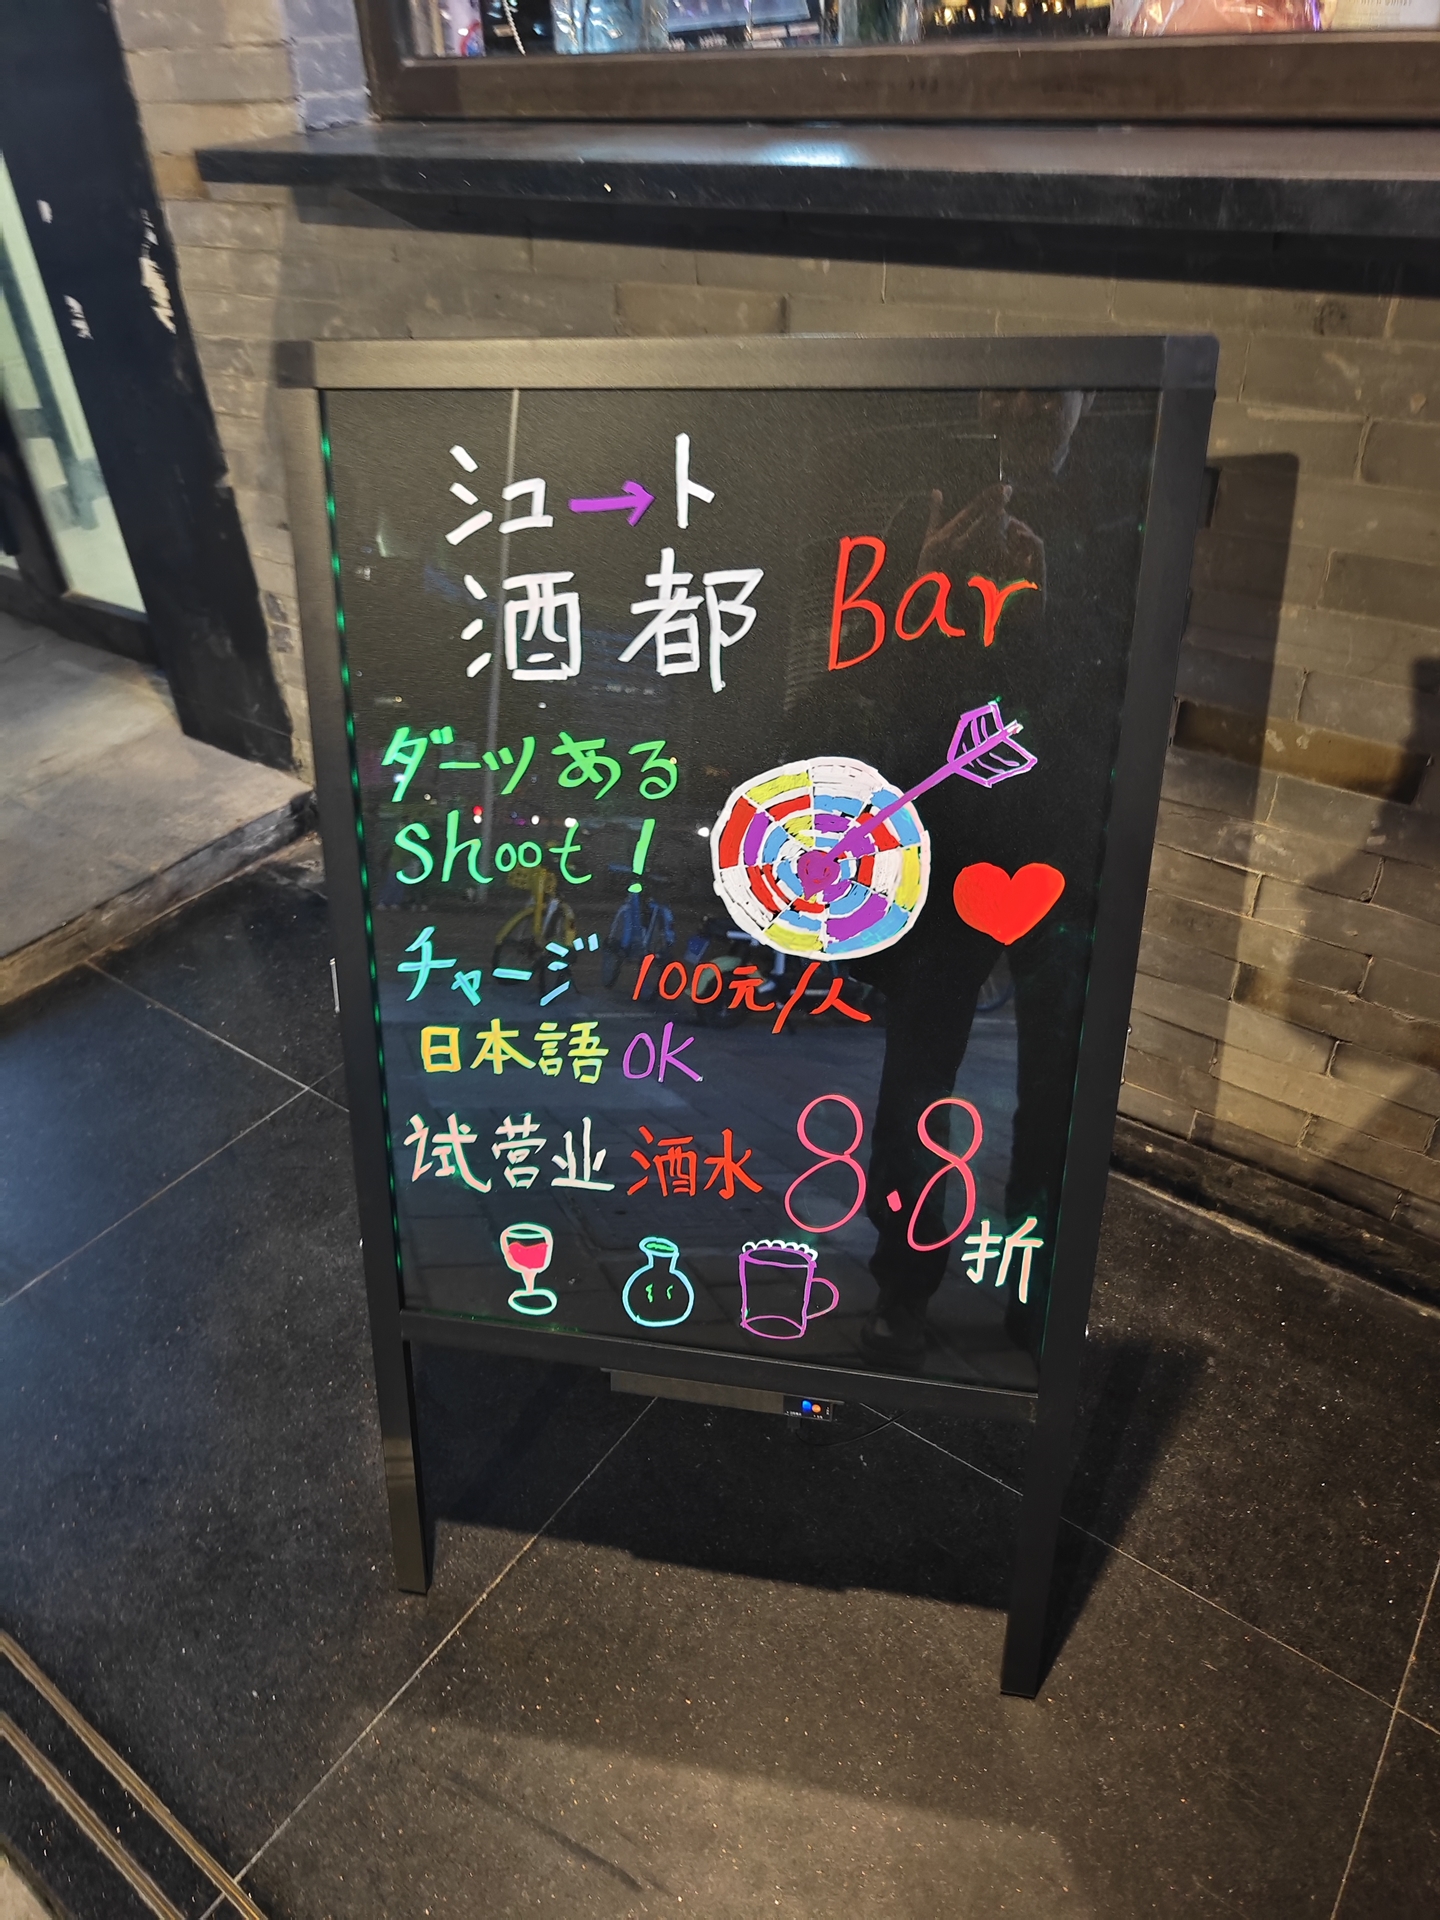 シュ→ト
酒都 Bar
ダーツある
Shoot!
チャージ 100元/人
日本語OK
试营业 酒水 8.8折